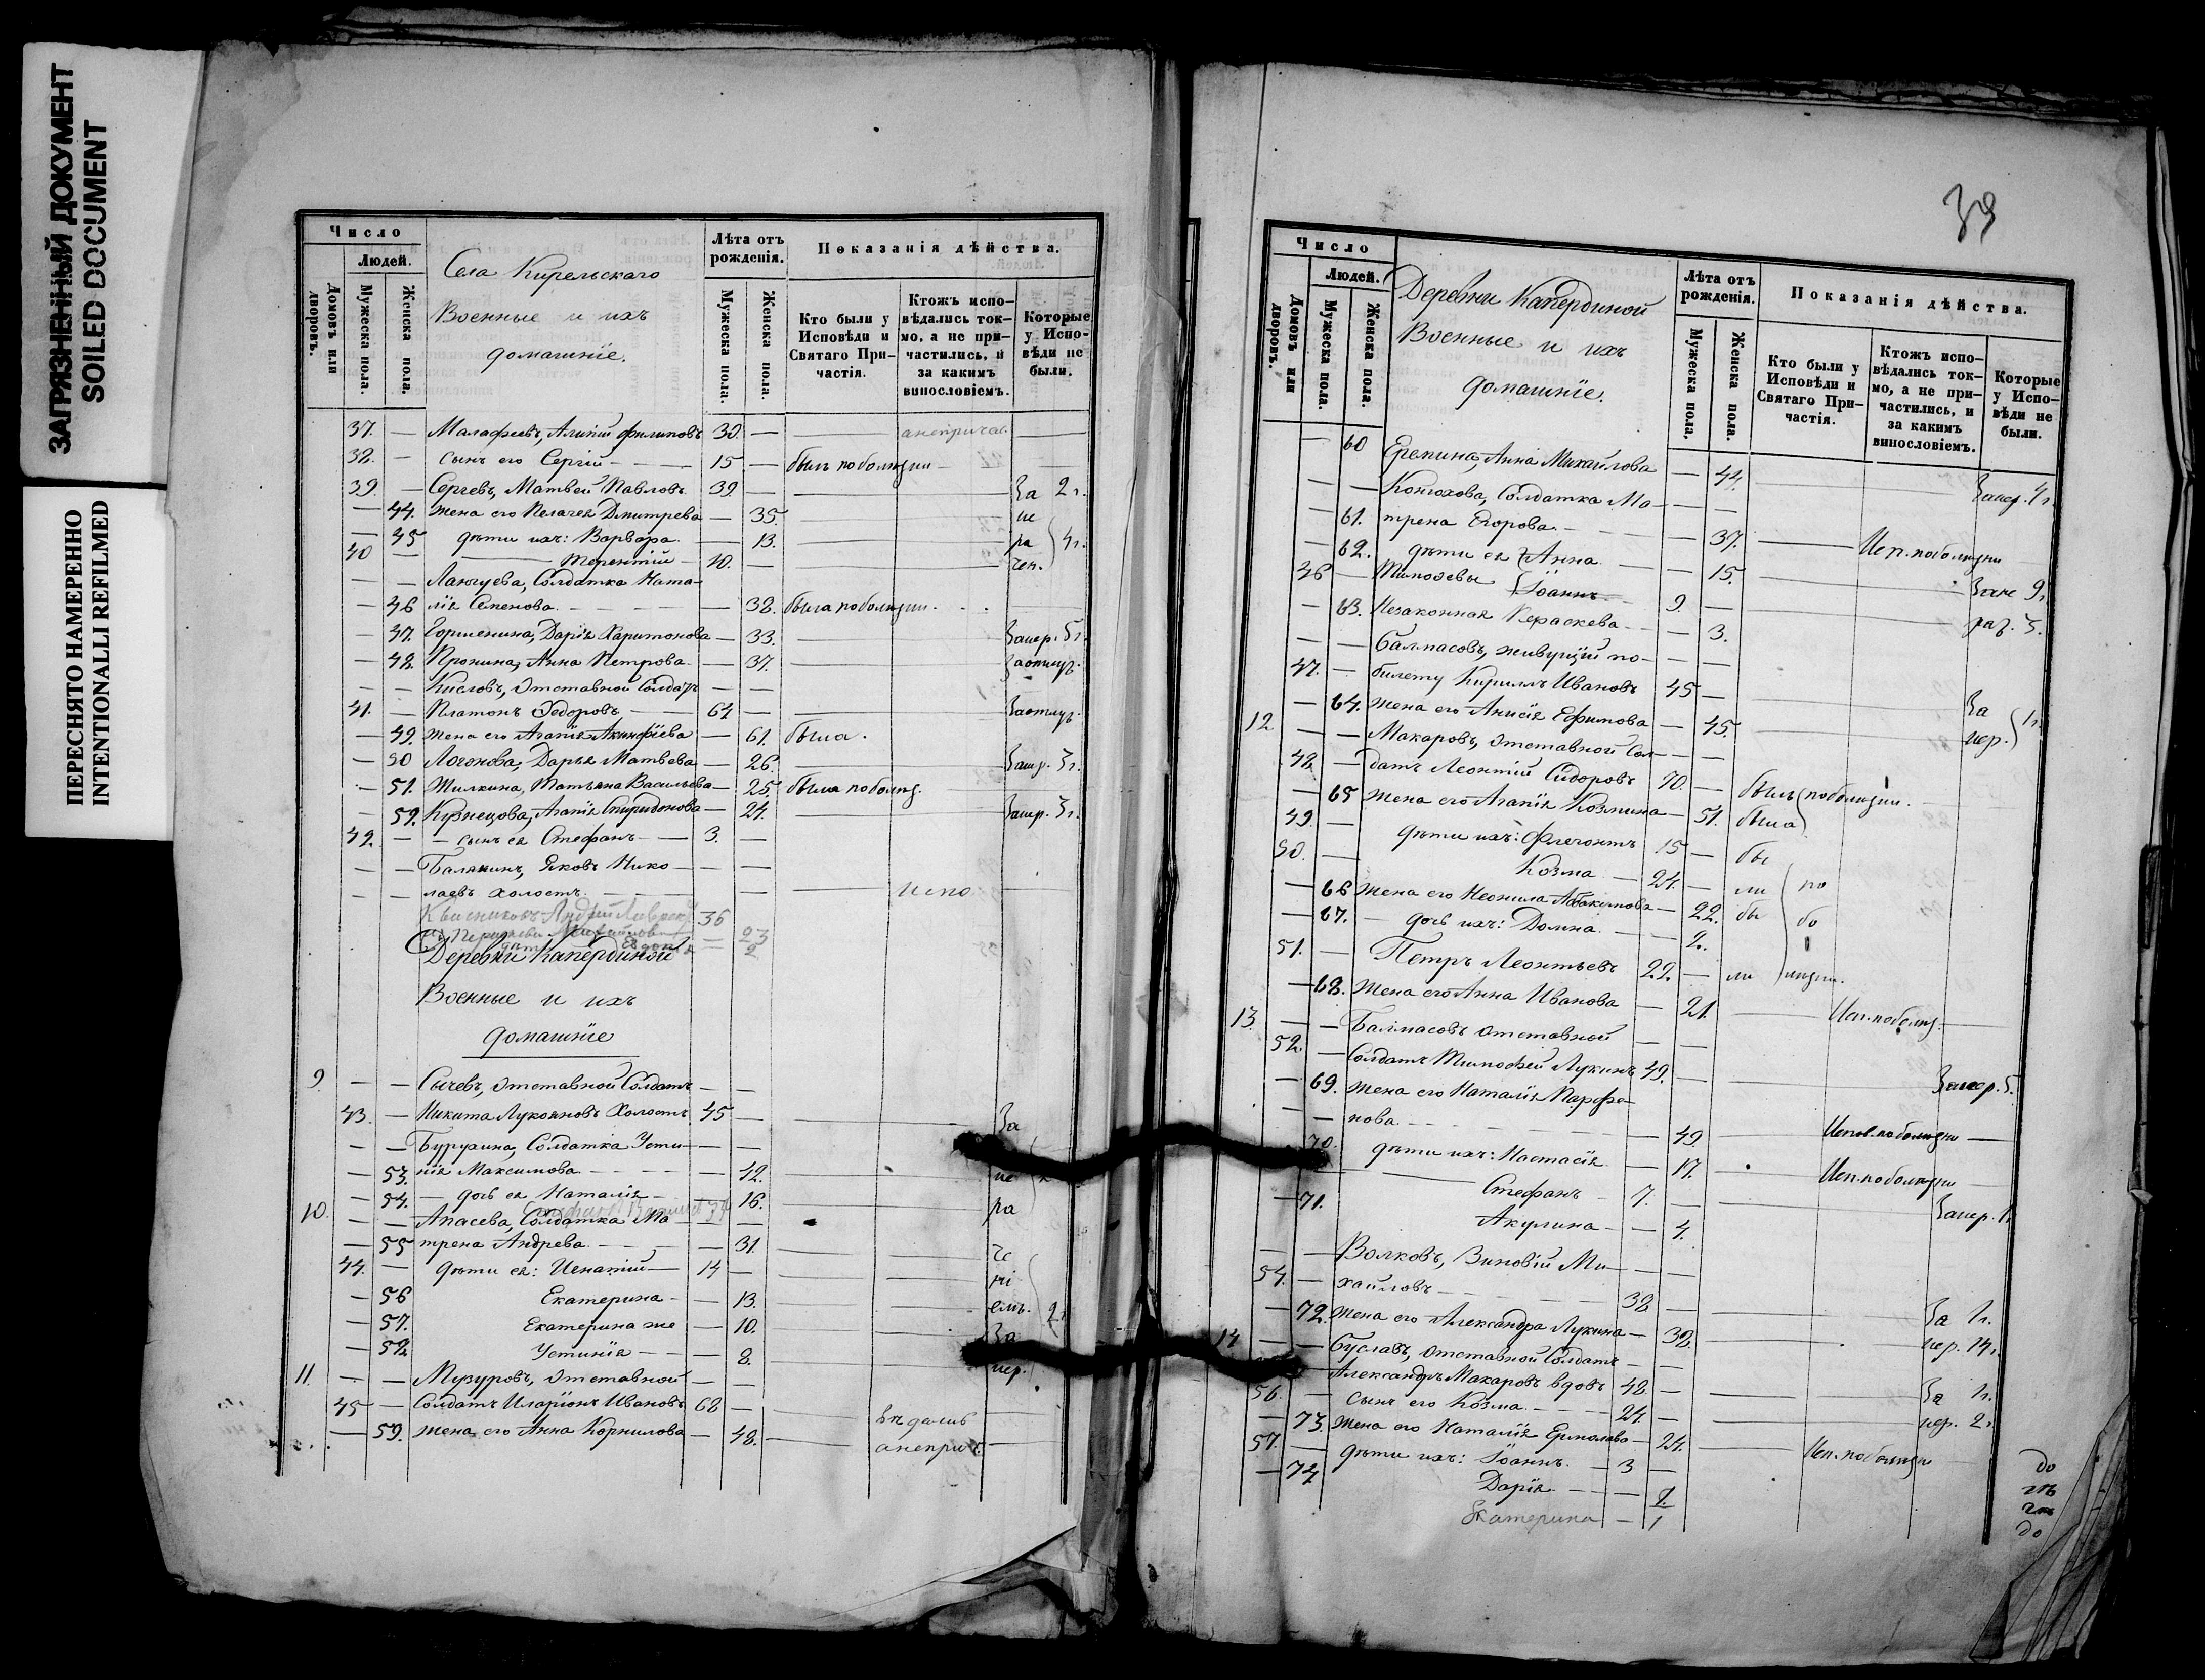 ЗАГРЯЗНЕННЫЙ ДОКУМЕНТ
SOILED DOCUMENT
ПЕРЕСНЯТО НАМЕРЕННО
INTENTIONALLI REFILMED
Число
Людей.
Домовъ или дворовъ.
Мужеска пола.
Женска пола.
Села Кирельскаго
Военные и ихъ
домашніе.
Лѣта отъ рожденія.
Мужеска пола.
Женска пола.
Показанія дѣйства.
Кто были у Исповѣди и Святаго Причастія.
Ктожъ исповѣдались токмо, а не причастились, и за какимъ винословіемъ.
Которые у Исповѣди не были.
37. — Малафеевъ, Алипій Филиповъ 30. —
38. — сынъ его Сергій 15 — былъ поболизни
39. — Сергевъ, Матвей Павловъ 39. — За 2 г.
— 44. жена его Пелагея Дмитрева — 35. не
— 45 дѣти ихъ: Варвара — 13. ра 4 г.
40 — Терентій 10. — чен.
— — солдатка Ната-
— 46 лія Семенова — 38. была поболизни.
— 47. Дарія Харитонова — 33. Занер. 5 г.
— 48. Пронина, Анна Петрова — 37.
— — Кисловъ, Отставной Солдатъ — —
41. — Платонъ Ѳедоровъ 64 —
— 49. жена его Агапія Акинфіева — 61. была.
— 50 Логонова, Дарья Матвева — 26. 3 г.
— 51. Жилкина, Татьяна Васильева — 25. была поболиз.
— 52. Кузнецова, Агапія Спиридонова — 24. Занер. 3 г.
42. — сынъ ея Стефанъ 3. —
— — Яковъ Нико- — —
— — лаевъ холостъ — испо
36
23
2
Деревни Капердиной
Военные и ихъ
домашніе
9. — — Сычевъ, Отставной Солдатъ — —
43. — Никита Лукояновъ Холостъ 45 — За
— — Солдатка Усти- — —
— 53. нія Максимова — 42. не
— 54. — дочь ея Наталія — 16. ра
10. — — Апасева, Солдатка Ма- — —
— 55 трена Андрева — 31. че
44. — дѣти ея: Игнатій 14 — ні
— 56 Екатерина — 13. емъ. 2 г.
— 57. Екатерина же — 10. За
— 58. Устинія — 8. нер.
11. — — Музуровъ, Отставной — —
45 — Солдатъ Иларіонъ Ивановъ 68 —
— 59. жена его Анна Корнилова — 48.
39
Число
Людей.
Домовъ или дворовъ.
Мужеска пола.
Женска пола.
Деревни Капердиной
Военные и ихъ
домашніе.
Лѣта отъ рожденія.
Мужеска пола,
Женска пола.
Показанія дѣйства.
Кто были у Исповѣди и Святаго Причастія.
Ктожъ исповѣдались токмо, а не причастились, и за какимъ винословіемъ.
Которые у Исповѣди не были.
— 60 Еремина, Анна Михайлова — 44. Занер. 4 г.
— — Конюхова, Солдатка Ма- — —
— 61. трена Егорова — 37. Исп. поболизни
— 62. дѣти ея Анна — 15.
46 — Тимоѳевы Іоаннъ 9. —
— 63. Незаконная Параскева — 3.
— — Балмасовъ, живущій по- — —
47. — билету Кирилъ Ивановъ 45 — За
— 64. жена его Анисія Ефимова — 45. нер. 1 г.
12 — — Макаровъ, Отставной Сол- — —
48 — датъ Леонтій Сидоровъ 70. — былъ поболизни.
— 65 жена его Агапія Козмина — 51. была
49. — дѣти ихъ: Флегонтъ 15 — бы
50. — Козма 24. — ли по
— 66 жена его Неонила Абакумова — 22. бы бо
— 67. — дочь ихъ: Домна — 2.
51. — Петръ Леонтьевъ 22. — ли лизни.
— 68. жена его Анна Иванова — 21. Исп. поболиз.
13. — — Балмасовъ Отставной — —
52 — Солдатъ Тимоѳей Лукинъ 49. — Занер. 5.
— 69. жена его Наталія Парфе-
— — нова — 49. Испов. поболизни —
70. дѣти ихъ: Настасія — 17. Исп. поболизни
Стефанъ 7. — Занер. 1
— 71. Акулина — 4.
— — Волковъ, Зиновій Ми- — —
54. — хайловъ 38 — За 1 г.
— 72. жена его Александра Лукина — 38. нер. 14.
14 — — Буславъ, Отставной Солдатъ — —
Александръ Макаровъ вдовъ 48. — За 1 г.
56. — сынъ его Козма 24. — нер. 2 г.
— 73. жена его Наталія Ермолаева — 24. Исп. поболизни
57. — дѣти ихъ: Іоаннъ 3 —
— 74 Дарія —
Екатерина — 1
до